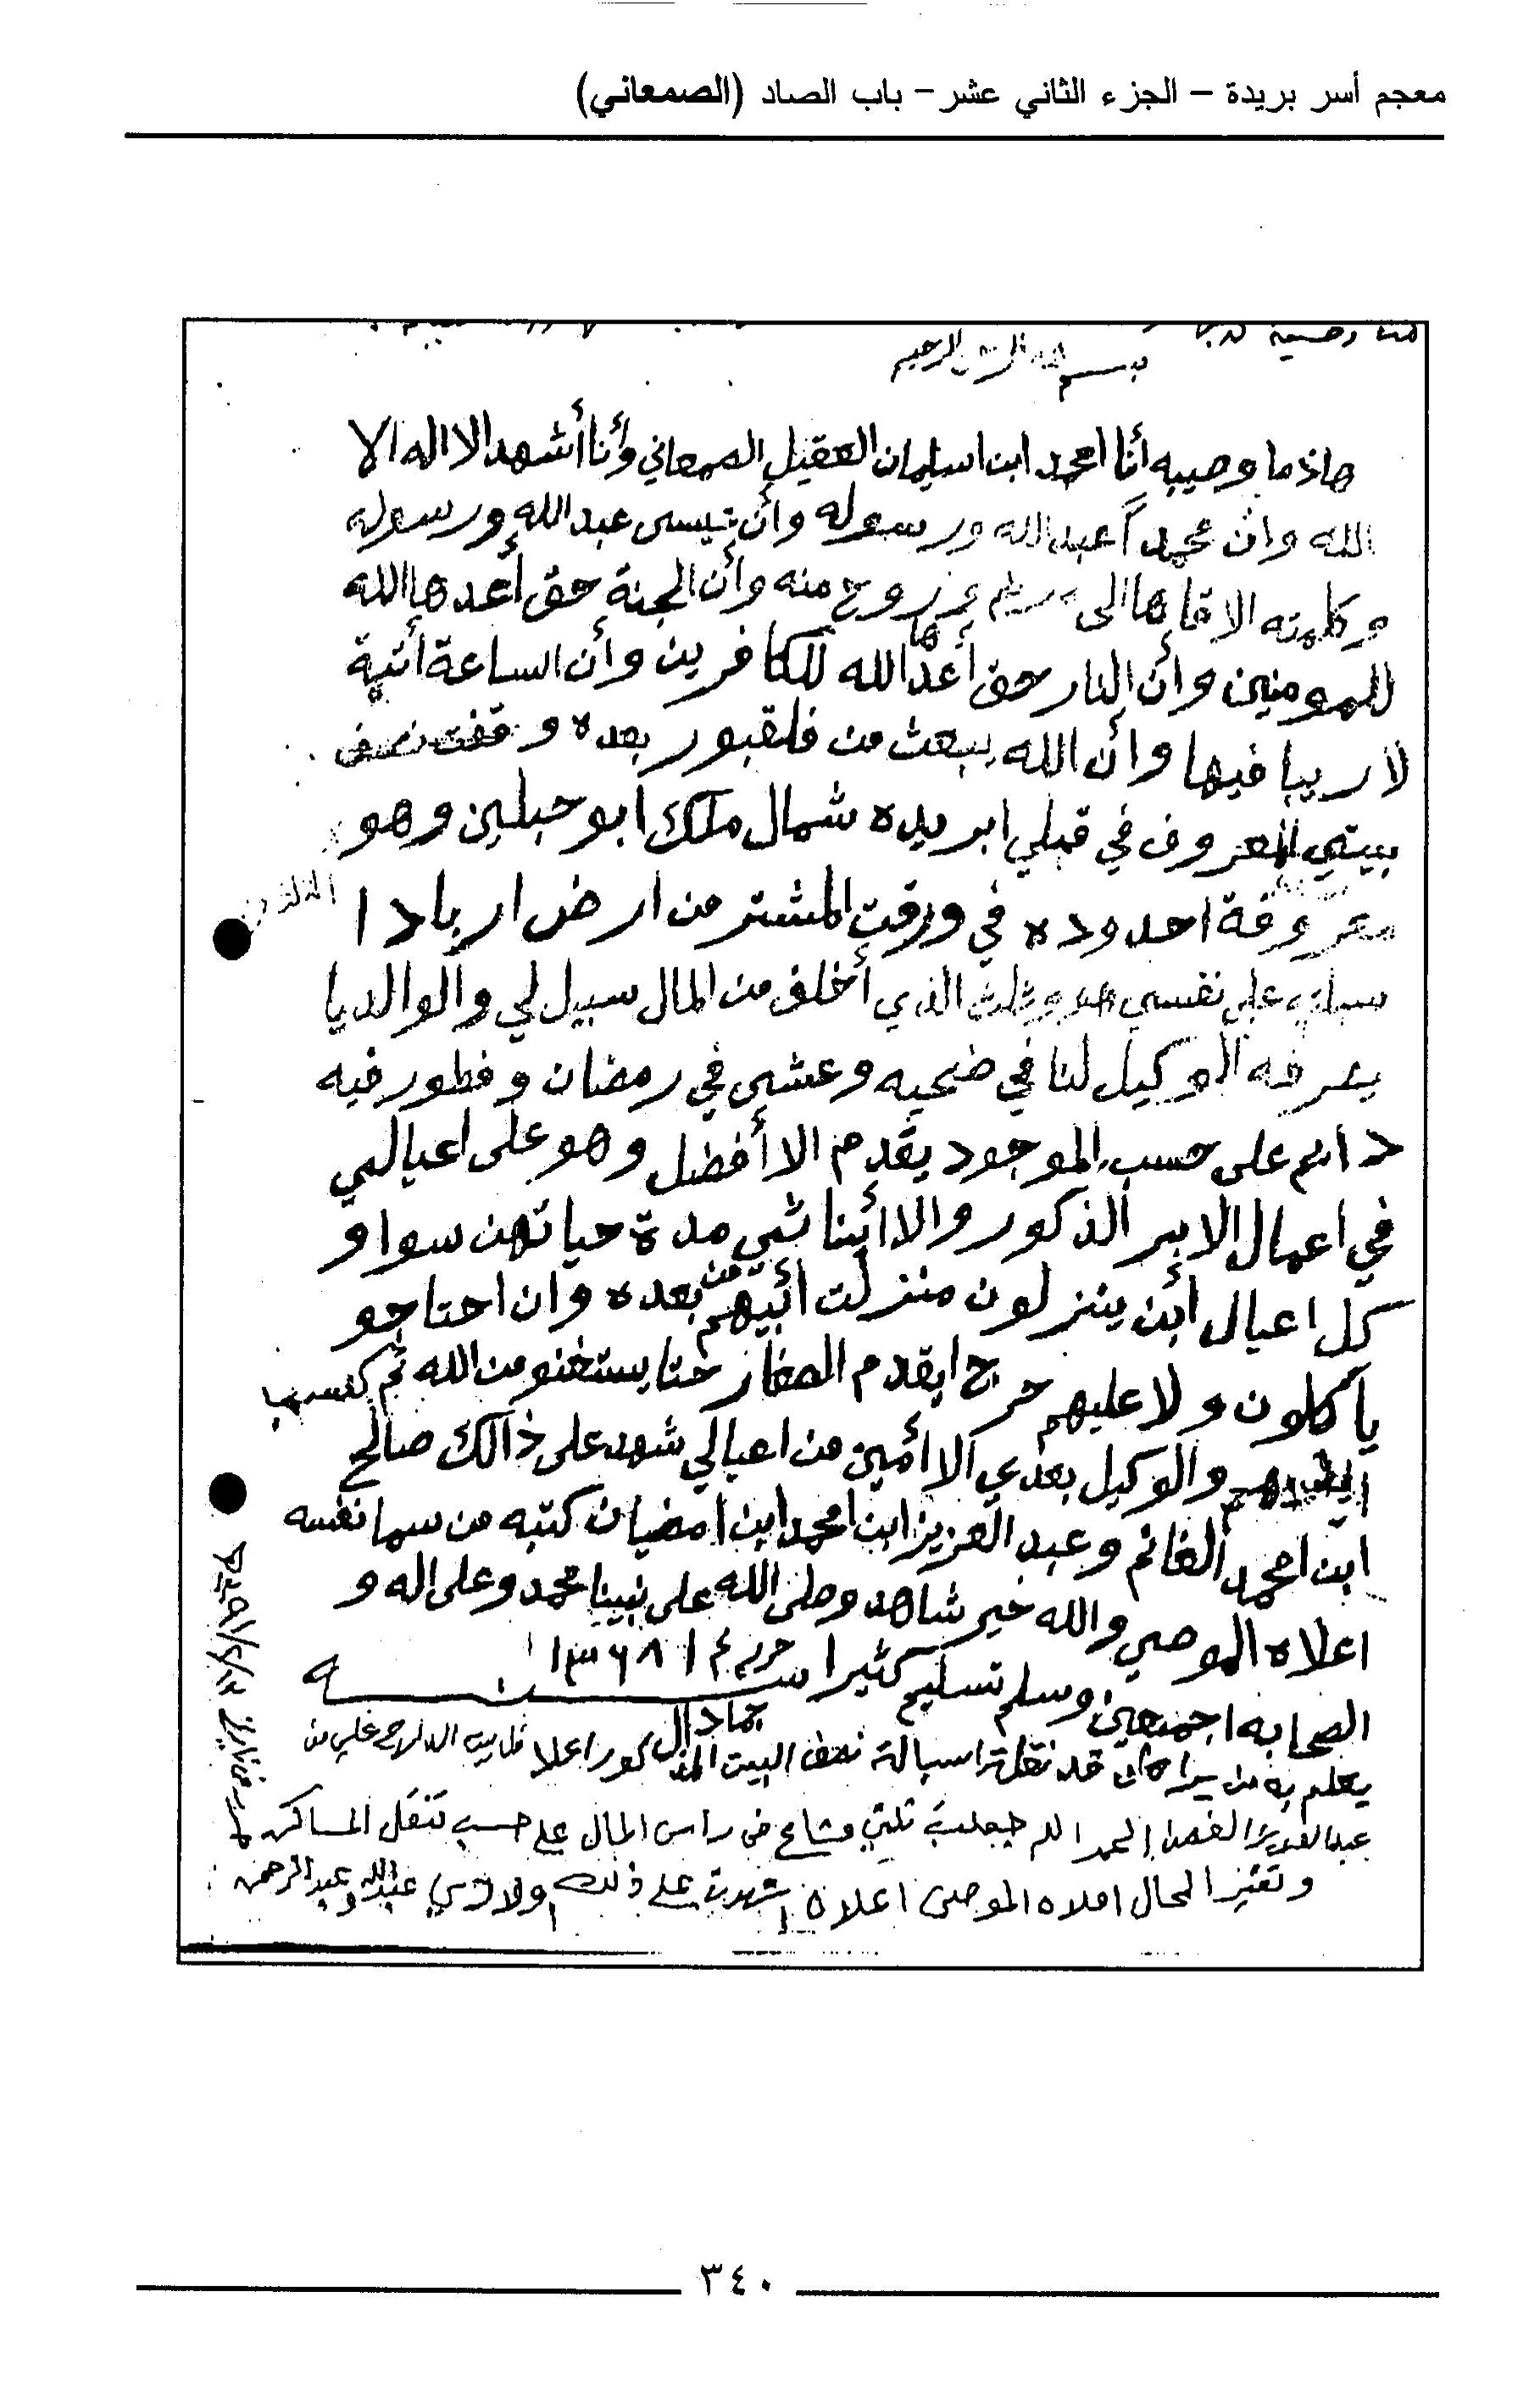 معجم أسر بريدة – الجزء الثاني عشر – باب الصاد (الصمعاني)
بسم الله الرحمن الرحيم
هاذ ما وصيبه أنا امحمد ابن اسليمان العقيل الصمعاني وأنا أشهد الا اله الا
الله وان محمداً عبد الله ورسوله وأن عيسى عبد الله ورسوله
وكلمته الاقاها الى مريم وروح منه وأن الجنة حق أعدها الله
للمومنين وأن النار حق أعدها الله للكافرين وأن الساعة أتية
لا ريبا فيها وأن الله يبعث من فلقبور بعده وقفت نصف
بيتي المعروف في قبلي ابريده شمال ملك ابو حبلين وهو
معروفة احدوده في ورقت المشتر من ارض ارباد ا
على نفسي هو وثلث الذي أخلف من المال سبيل لي والوالديا
يعرفه الوكيل لنا في ضحيه وعشى في رمضان وفطور فيه
دايم على حسب الموجود يقدم الا أفضل وهو على اعيالي
في اعمال الابر الذكور والا أيناثي مدة حياتهن سوا و
كل اعيال ابن ينزلون منزلت أبيهم من بعده وان احتاجو
يأكلون ولا عليهم حرج ايقدم الصغار حتا يستغنو من الله ثم كسب
ايديهم والوكيل بعدي الا أمين من اعيالي شهد على ذالك صالح
ابن امحمد الغانم وعبد العزيز ابن امحمد ابن امضيان كتبه من سما نفسه
اعلاه الموصي والله خير شاهد وصلى الله على نبينا محمد وعلى اله و
الصحابه اجمعين وسلم تسليم كثيرا حرر م ١ ١٣٦٨
جماد
يعلم به من يراه كان قد نقلة اسبالة نصف البيت المذكور اعلا
الحمد لله جعلت ثلثي مشاع في راس المال على حسب تنقل المساكن
وتغير الحال املاه الموصي اعلاه شهدت على ذلك اولادي عبد الله وعبد الرحمن
٣٤٠